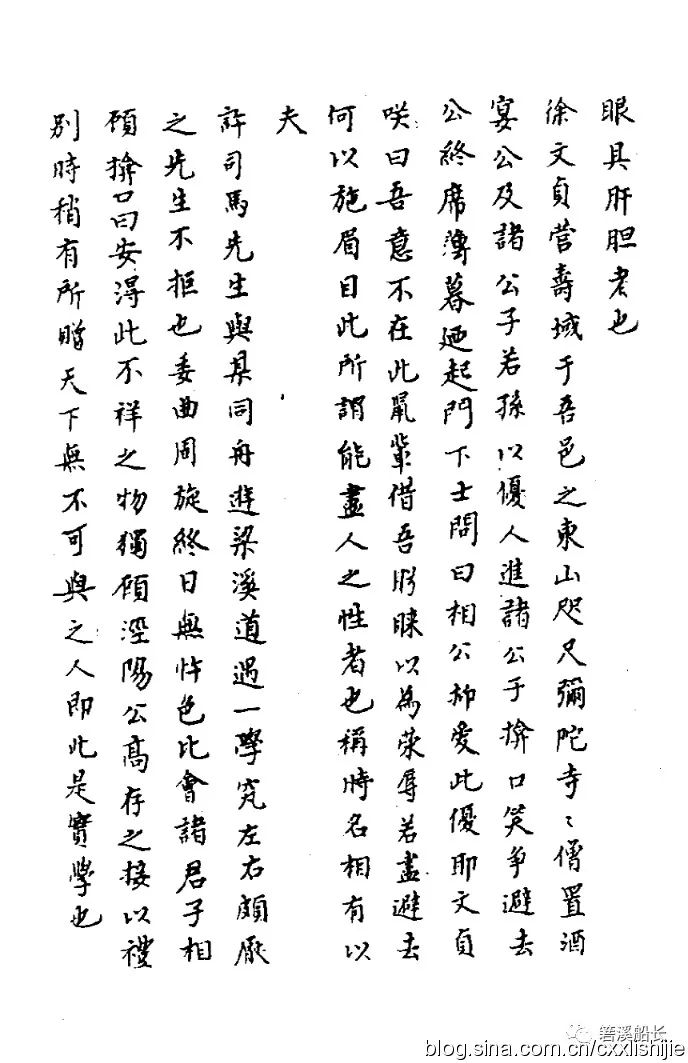 眼具肝胆者也
徐文貞营壽域于吾邑之東山咫尺彌陀寺〻僧置酒
宴公及諸公子若孫以優人進諸公子揜口笑争避去
公終席薄暮廼起門下士問曰相公抑爱此優耶文貞
咲曰吾意不在此鼠輩借吾盼睞以為荣辱若盡避去
何以施眉目此所謂能盡人之性者也稱時名相有以
夫
許司馬先生與某同舟遊梁溪道遇一學究左右頗厭
之先生不拒也委曲周旋終日無忤色比會諸君子相
顧揜口曰安淂此不祥之物獨顧涇陽公髙存之接以禮
别時稍有所贈天下無不可與之人即此是實學也
箬溪船长
blog.sina.com.cn/cxxlishijie